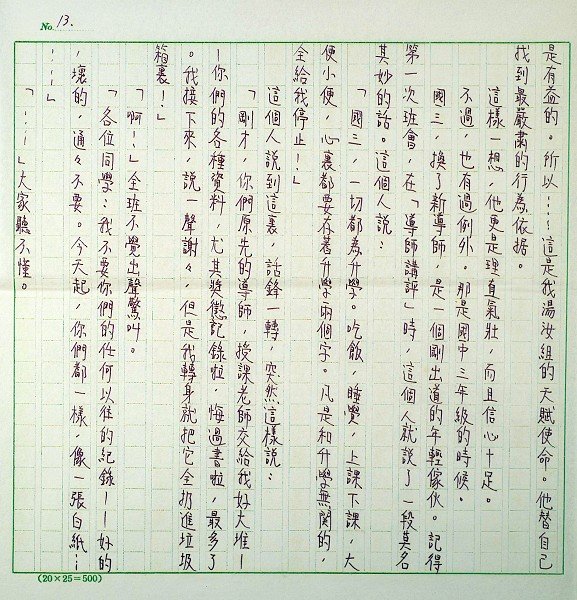 No. 13.
是有益的。所以……這是我湯汝組的天賦使命。他替自己
找到最嚴肅的行為依據。
這樣一想，他更是理直氣壯，而且信心十足。
不過，也有過例外。那是國中三年級的時候。
國三，換了新導師，是一個剛出道的年輕傢伙。記得
第一次班會，在「導師講評」時，這個人就說了一段莫名
其妙的話。這個人說：
「國三，一切都為升學。吃飯，睡覺，上課下課，大
便小便，心裏都要存著升學兩個字。凡是和升學無關的，
全給我停止！」
這個人說到這裏，話鋒一轉，突然這樣說：
「剛才，你們原先的導師，授課老師交給我好大堆—
—你們的各種資料，尤其獎懲記錄啦，悔過書啦，最多了
。我接下來，說一聲謝々，但是我轉身就把它全扔進垃圾
箱裏！」
「啊！」全班不覺出聲驚叫。
「各位同學：我不要你們的任何以往的紀錄——好的
，壞的，通々不要。今天起，你們都一樣，像一張白紙…
…」
「……」大家聽不懂。
(20×25=500)